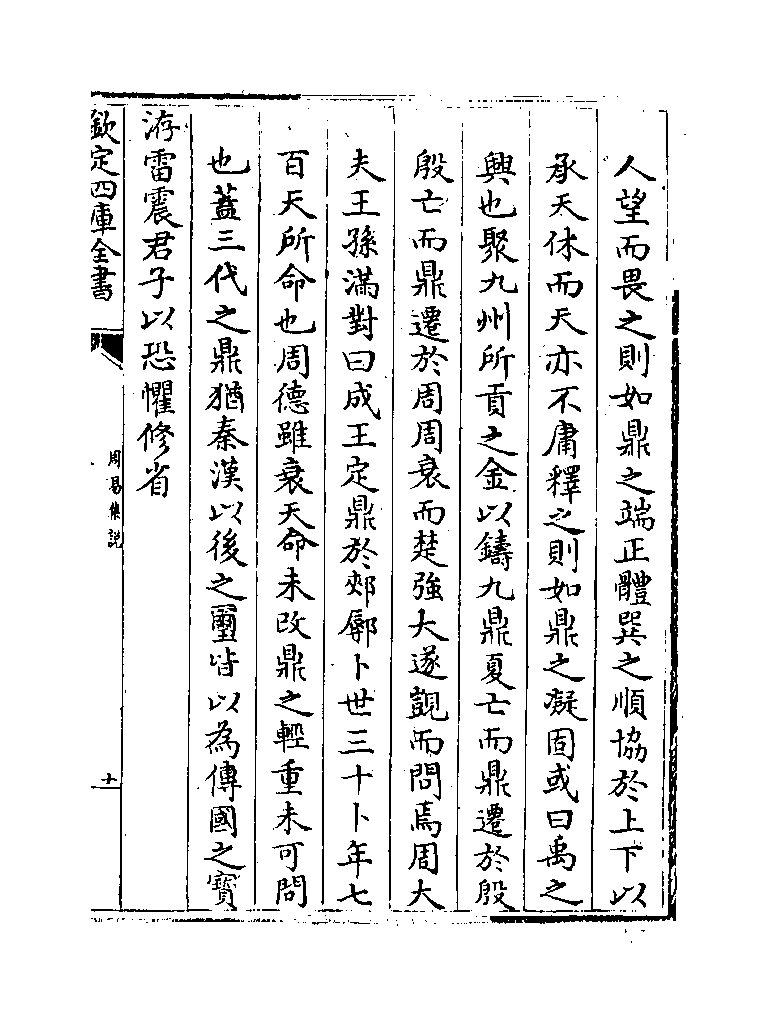 人望而畏之則如鼎之端正體巽之順協於上下以
承天休而天亦不庸釋之則如鼎之凝固或曰禹之
興也聚九州所貢之金以鑄九鼎夏亡而鼎遷於殷
殷亡而鼎遷於周周衰而楚強大遂覬而問焉周大
夫王孫滿對曰成王定鼎於郟鄏卜世三十卜年七
百天所命也周德雖衰天命未改鼎之輕重未可問
也蓋三代之鼎猶秦漢以後之璽皆以為傳國之寳
洊雷震君子以恐懼修省
欽定四庫全書
周易集説
十